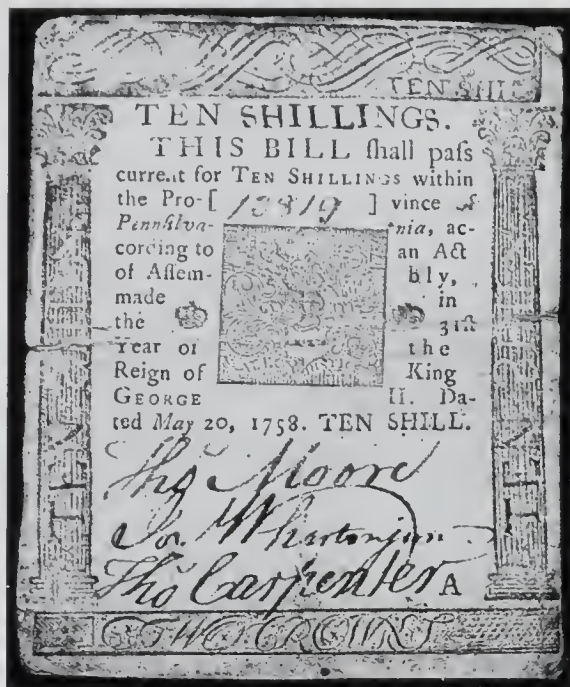 TEN SHIL
TEN SHILLINGS.
THIS BILL ſhall paſs
current for TEN SHILLINGS within
the Pro-[ 13819 ] vince of
Pennſilva- nia, ac-
cording to an Act
of Aſſem- bly,
made in
the 31ſt
Year of the
Reign of King
GEORGE II. Da-
ted May 20, 1758. TEN SHILL.
Tho Moore
Jos. Wharton jun
Tho Carpenter A
TWO CROWNS